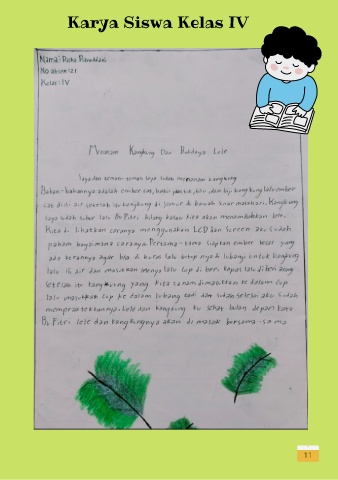 Karya Siswa Kelas IV
Nama:
No absen:21
Kelas:IV
Menanam Kangkung Dan Budidaya Lele
Saya dan teman-teman saya sudah menanam kangkung
Bahan-bahannya adalah ember cat, dan biji kangkung lalu ember
cat di isi air setelah itu kangkung di jemur di bawah sinar matahari. Kangkung
saya sudah subur lalu Bu Pitri bilang kalau kita akan menambahkan lele.
Kita di lihatkan caranya menggunakan LCD dan Screen aku sudah
paham bagaimana caranya Pertama-tama siapkan ember besar yang
ada kerannya agar bisa di kuras lalu tutup nya di lubangi untuk kangkung
lalu isi air dan masukan lelenya lalu cup di beri kapas lalu diberi arang
setelah itu kangkung yang kita tanam dimasukkan ke dalam cup
lalu masukkan cup ke dalam lubang tadi dan sudah selesai aku sudah
mempraktekkannya. Lele dan kangkung ku sehat bulan depan kata
Bu Pitri lele dan kangkungnya akan di masak bersama-sama
11